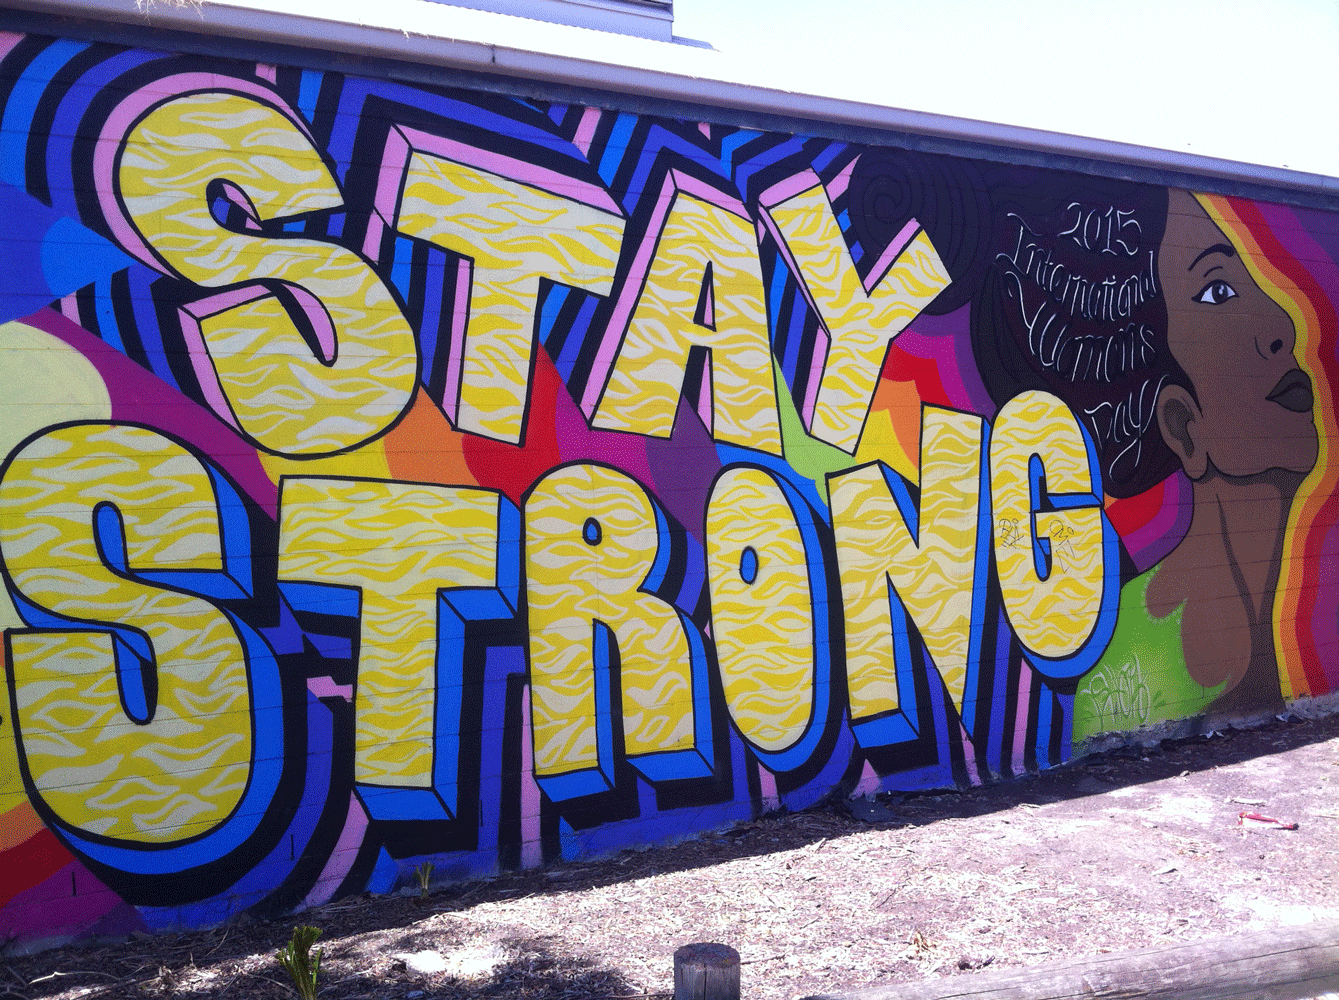 STAY
STRONG
2015
International
Womens
Day